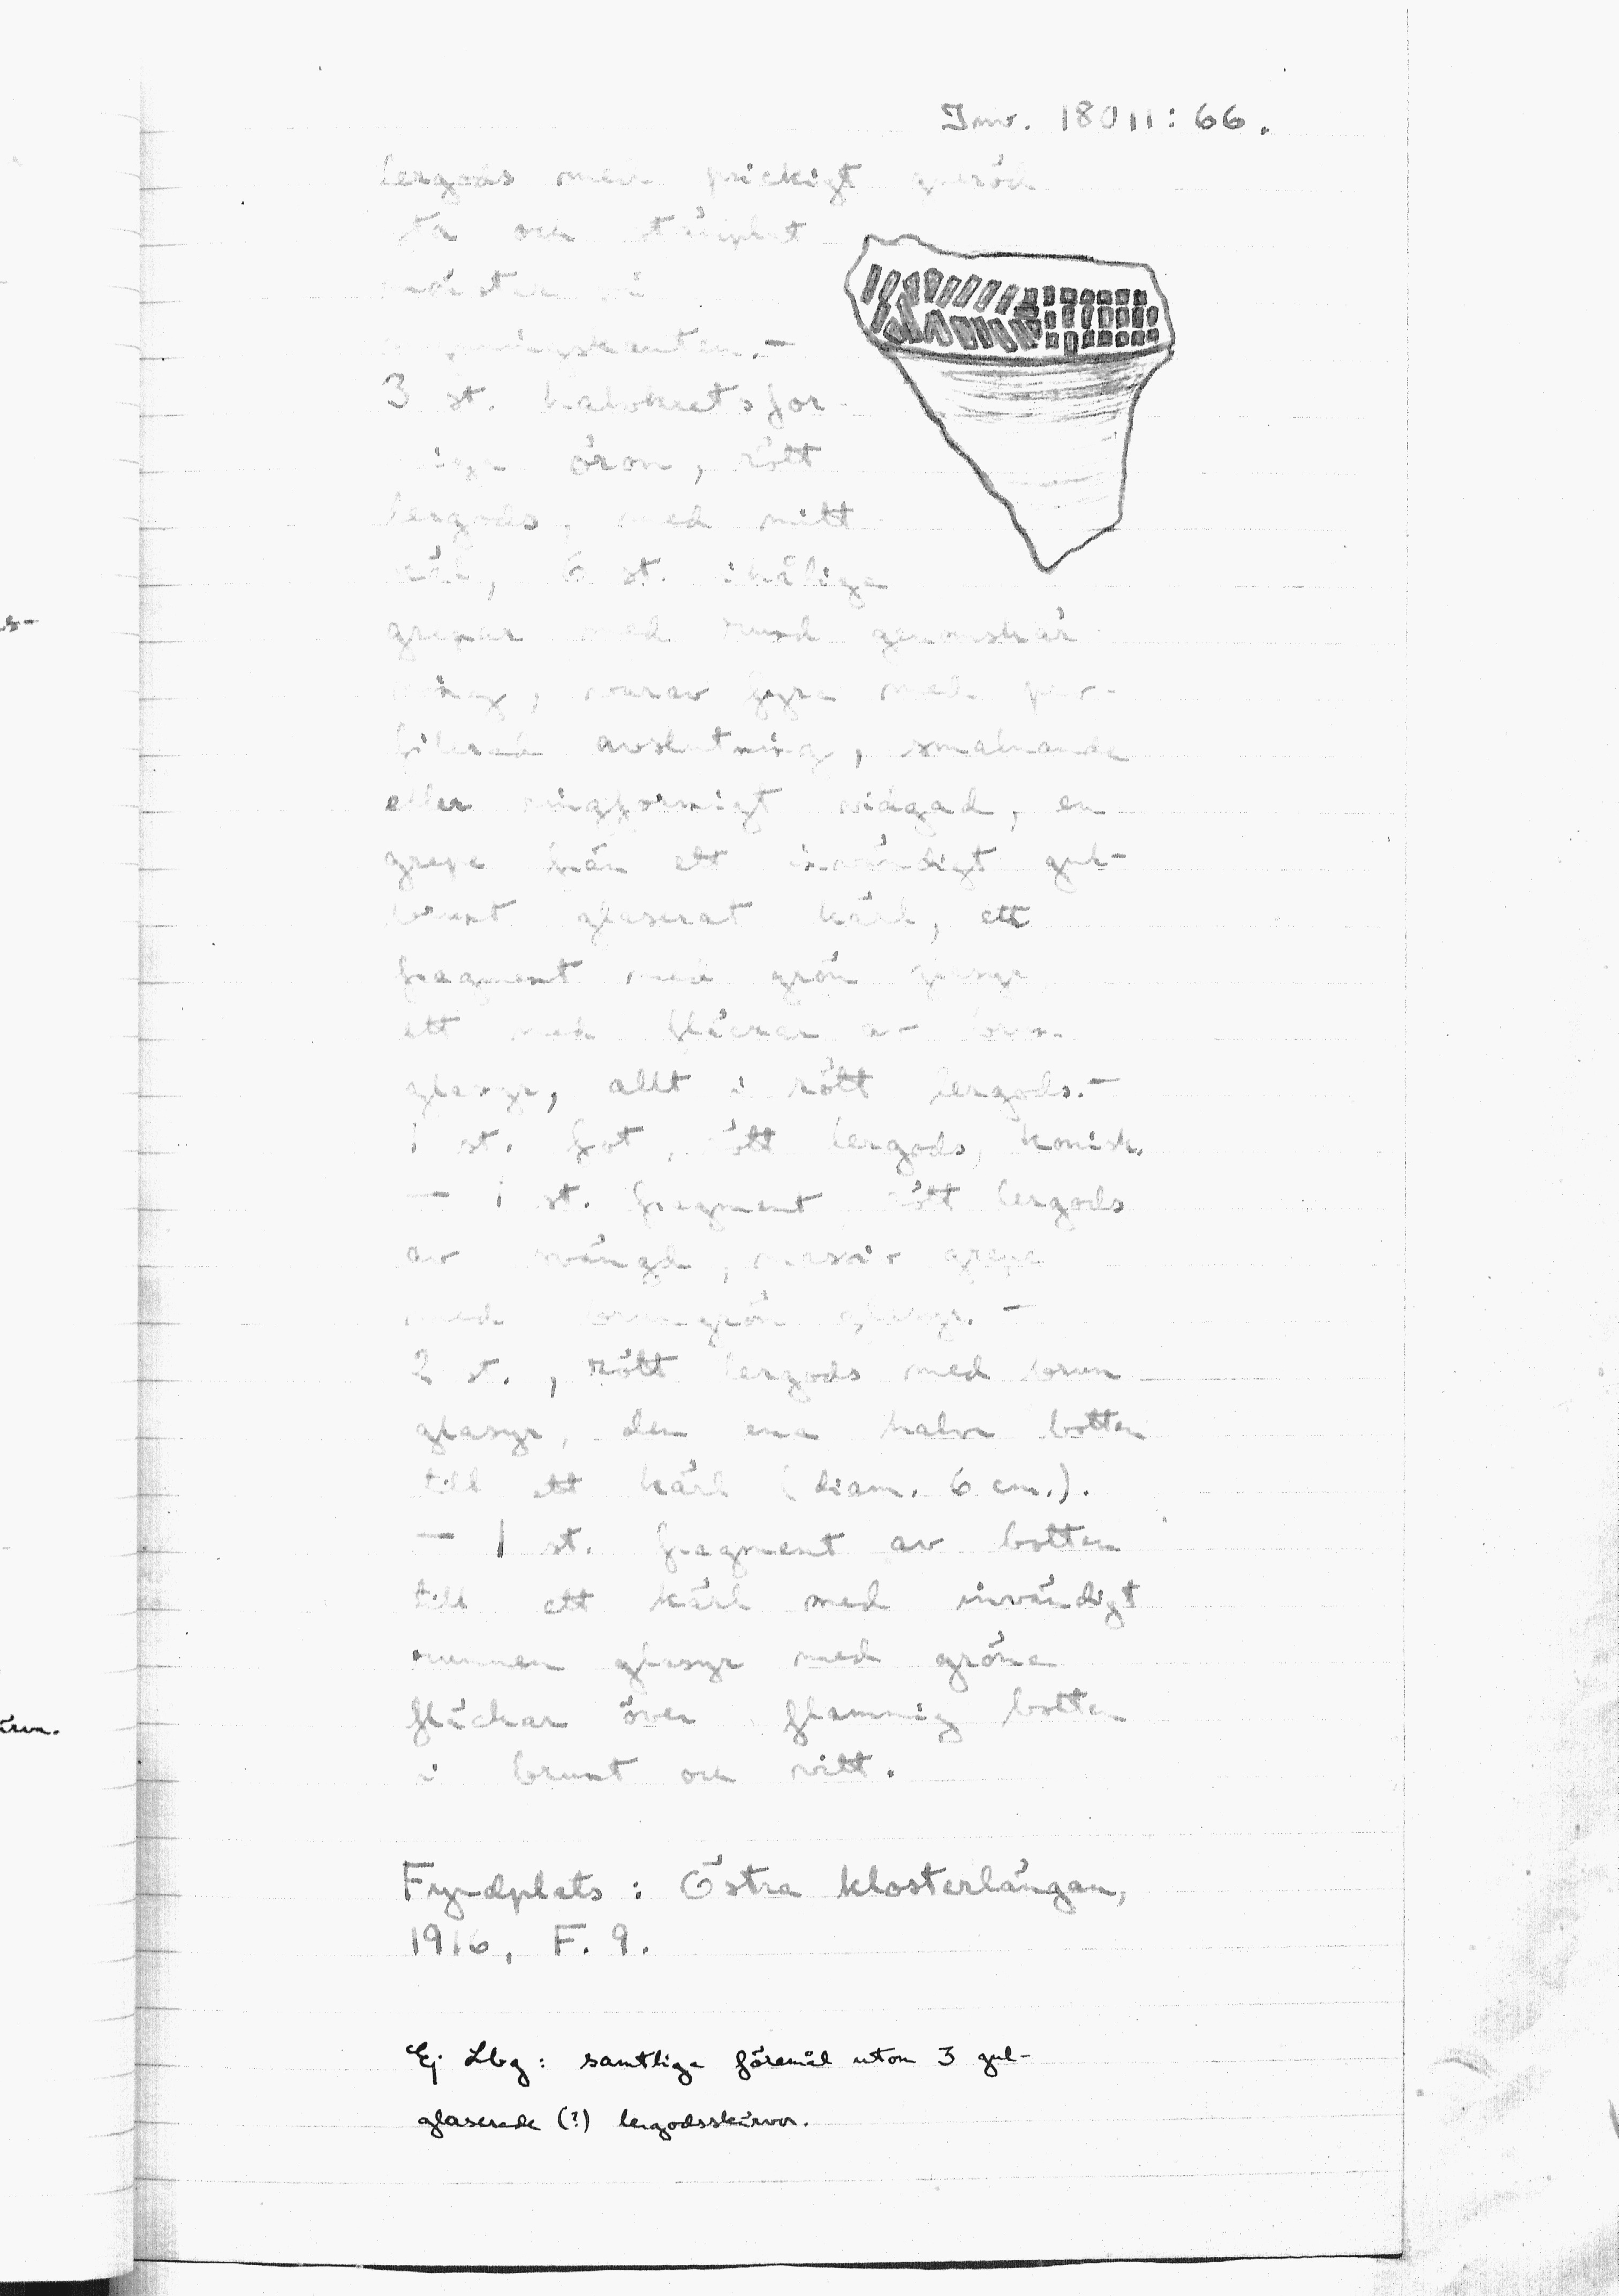 Inv. 18011:66.
lergods med prickigt gulröd
ta och stämplat
mönster
mynningskanten.-
3 st. halvkretsfor-
miga öron, rött
lergods, med mitt
hål, 6 st. ihåliga
grepar med rund genomskär-
ning, varav fyra med pro-
filerad avslutning, smalnande
eller ringformigt vidgad, en
grepe från ett invändigt gul-
brunt glaserat kärl, ett
fragment med grön glasyr
ett med fläckar av brun
glasyr, allt i rött lergods.-
1 st. fot, rött lergods, konisk.
- 1 st. fragment rött lergods
av svängd, massiv grepe
med brungrön glasyr. -
2 st., rött lergods med brun
glasyr, den ena halva botten
till ett kärl (diam. 6 cm.).
- 1 st. fragment av botten
till ett kärl med invändigt
runnen glasyr med gröna
fläckar över flammig botten
i brunt och vitt.
Fyndplats: Östra klosterlängan,
1916, F. 9.
Ej Lbg: samtliga föremål utom 3 gul-
glaserade (?) lergodsskärvor.